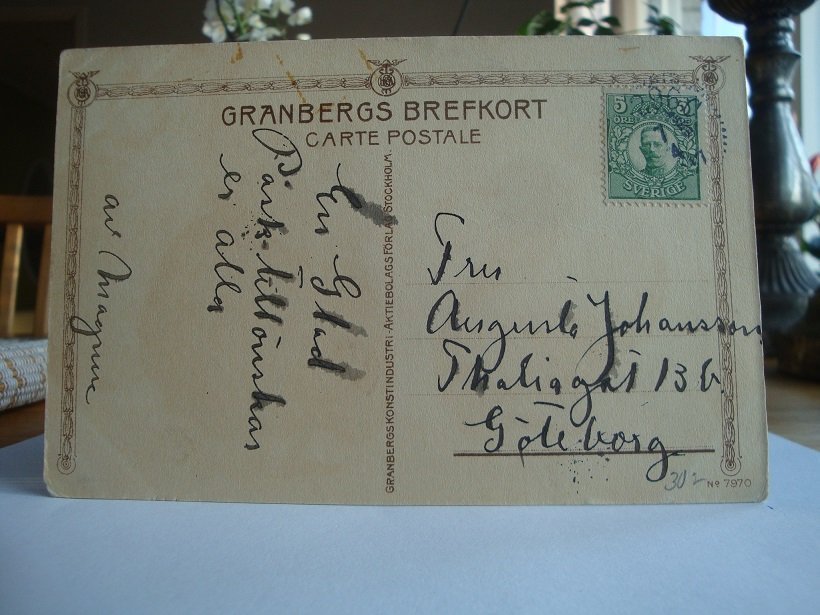 GRANBERGS BREFKORT
CARTE POSTALE
5 5
ÖRE
SVERIGE
En Glad
Påsk tillönskas
er alla
av Magnus
GRANBERGS KONSTINDUSTRI-AKTIEBOLAGS FÖRLAG STOCKHOLM.
Fru
Augusta Johansson
Thaliagat 13 b.
Göteborg
302
No 7970